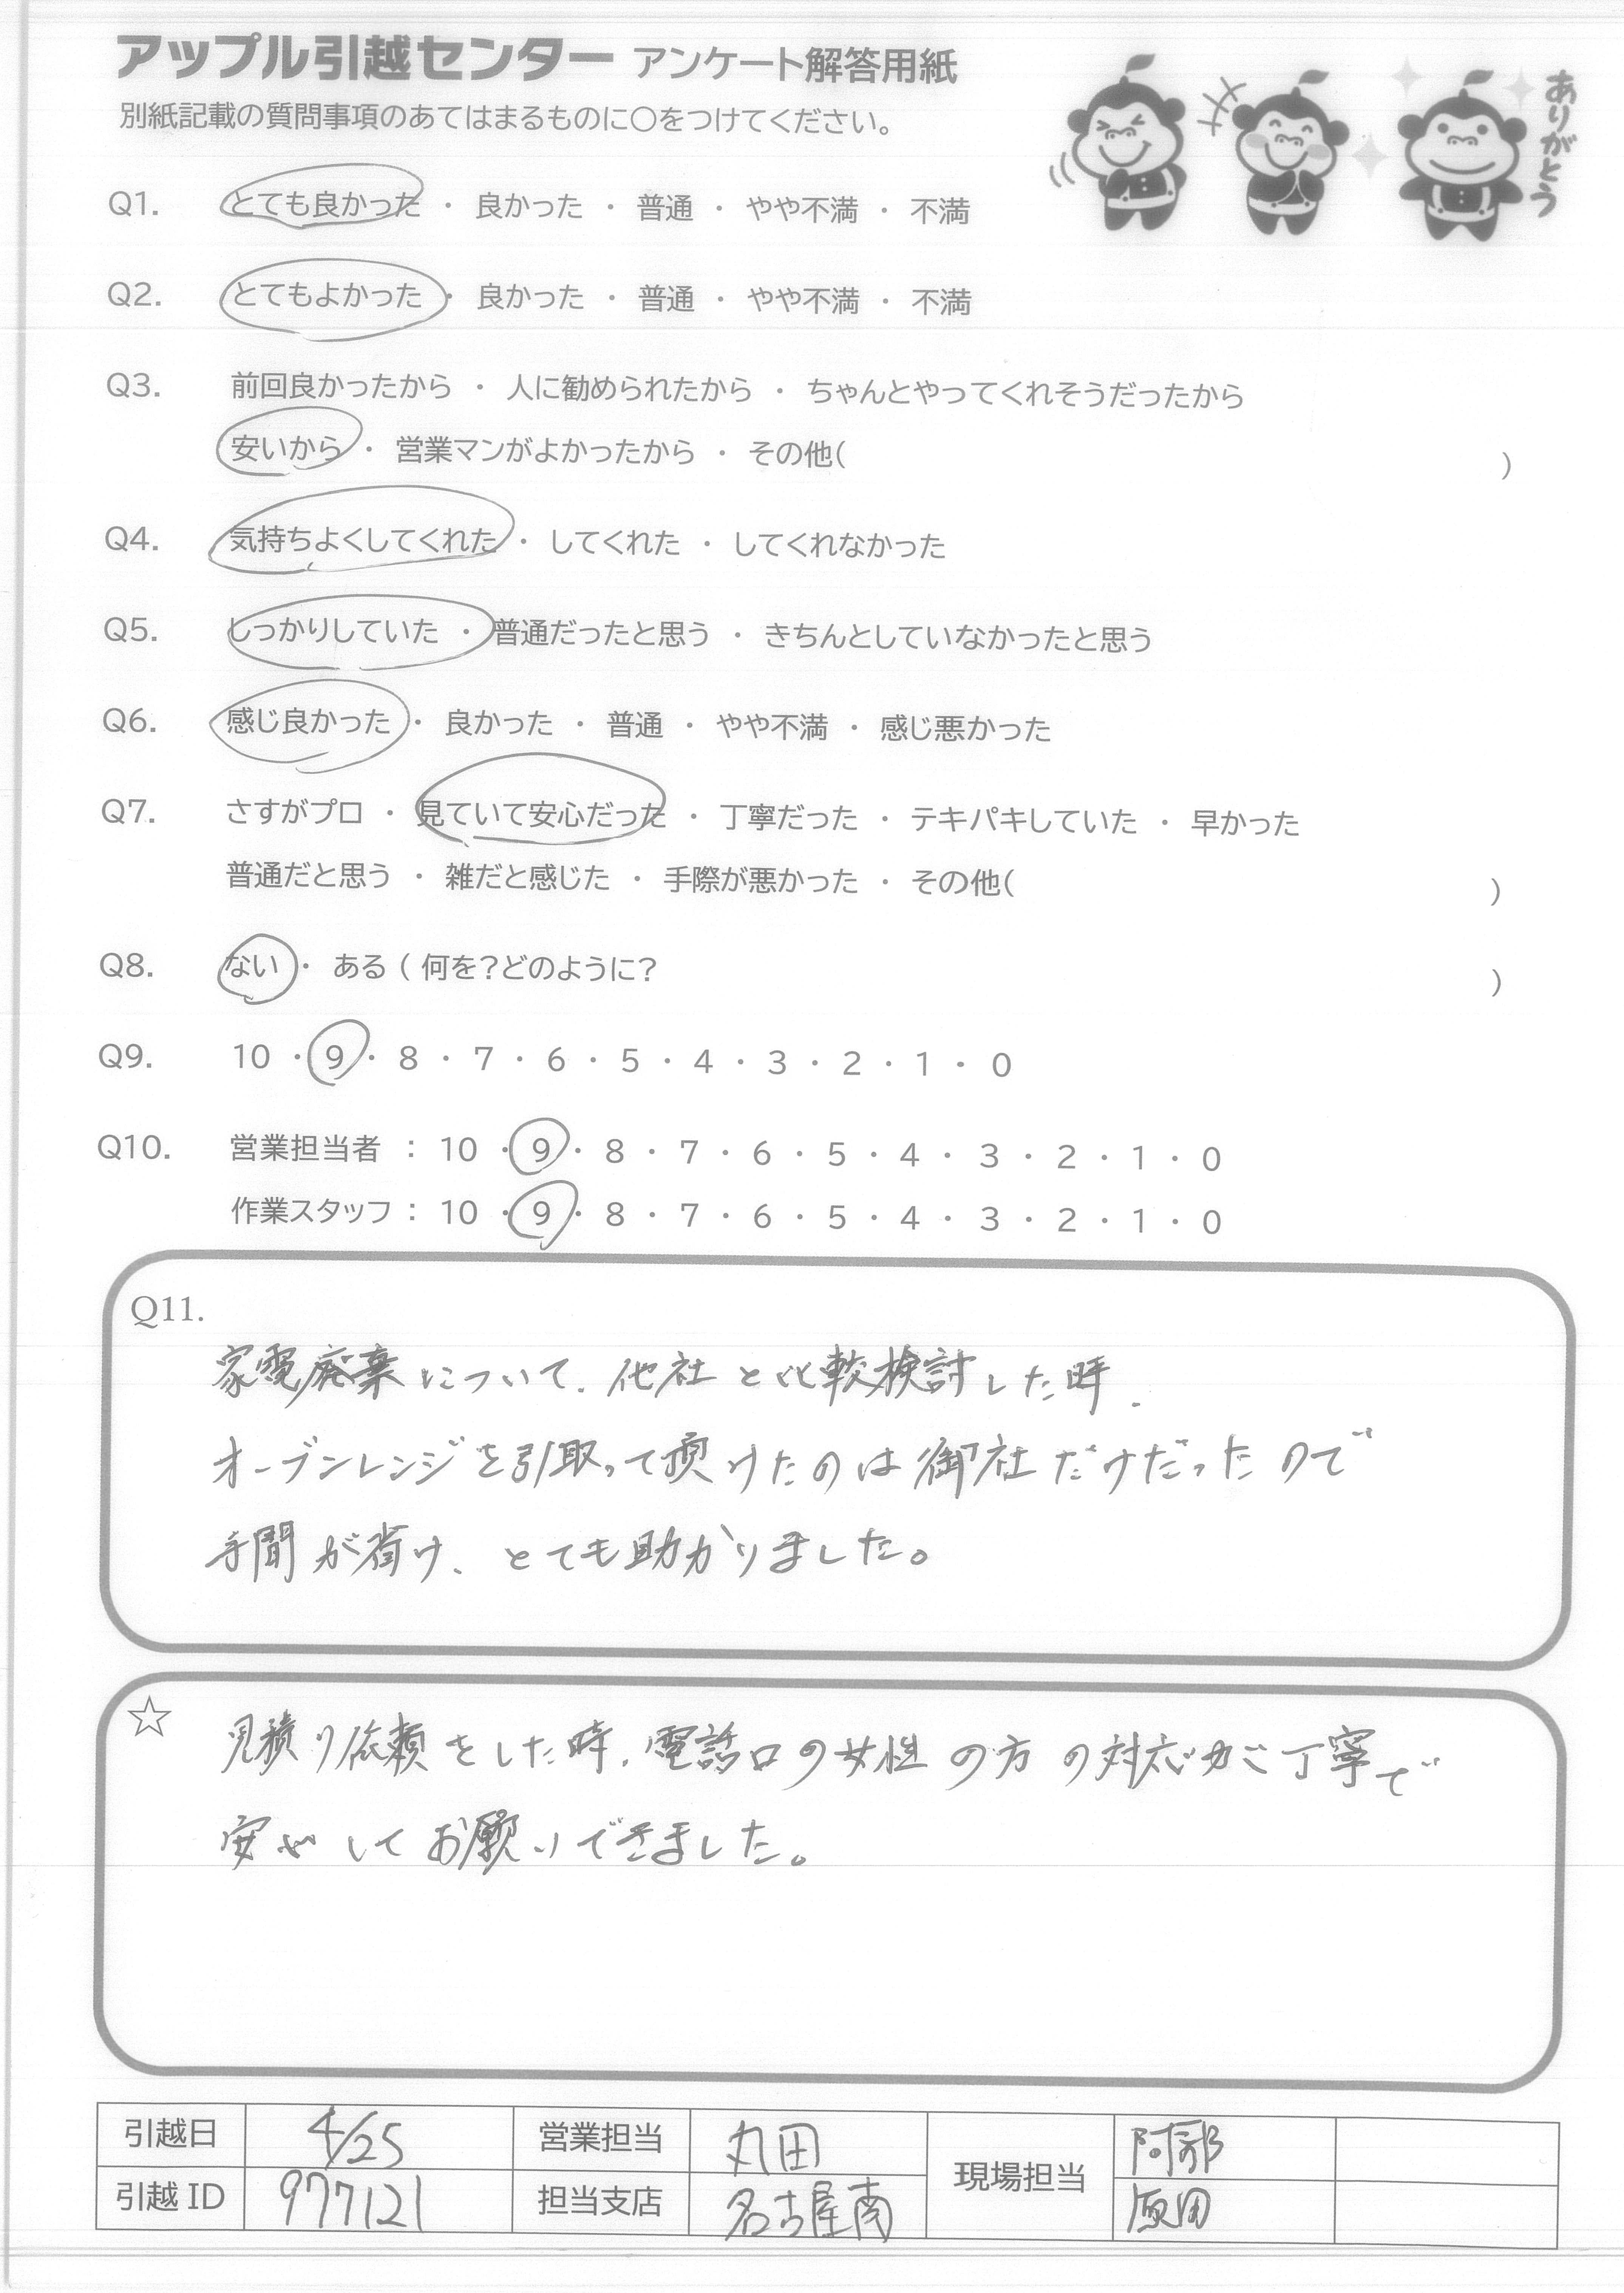 アップル引越センター アンケート解答用紙
ありがとう
別紙記載の質問事項のあてはまるものに○をつけてください。
Q1. とても良かった ・ 良かった ・ 普通 ・ やや不満 ・ 不満
Q2. とてもよかった ・ 良かった ・ 普通 ・ やや不満 ・ 不満
Q3. 前回良かったから ・ 人に勧められたから ・ ちゃんとやってくれそうだったから
安いから ・ 営業マンがよかったから ・ その他( )
Q4. 気持ちよくしてくれた ・ してくれた ・ してくれなかった
Q5. しっかりしていた ・ 普通だったと思う ・ きちんとしていなかったと思う
Q6. 感じ良かった ・ 良かった ・ 普通 ・ やや不満 ・ 感じ悪かった
Q7. さすがプロ ・ 見ていて安心だった ・ 丁寧だった ・ テキパキしていた ・ 早かった
普通だと思う ・ 雑だと感じた ・ 手際が悪かった ・ その他( )
Q8. ない ・ ある ( 何を?どのように? )
Q9. 10 ・ 9 ・ 8 ・ 7 ・ 6 ・ 5 ・ 4 ・ 3 ・ 2 ・ 1 ・ 0
Q10. 営業担当者 : 10 ・ 9 ・ 8 ・ 7 ・ 6 ・ 5 ・ 4 ・ 3 ・ 2 ・ 1 ・ 0
作業スタッフ : 10 ・ 9 ・ 8 ・ 7 ・ 6 ・ 5 ・ 4 ・ 3 ・ 2 ・ 1 ・ 0
Q11.
家電廃棄について、他社と比較検討した時、
オーブンレンジを引取って頂けたのは御社だけだったので
手間が省け、とても助かりました。
☆ 見積り依頼をした時、電話口の女性の方の対応がご丁寧で
安心してお願いできました。
引越日 4/25 営業担当 丸田 現場担当 阿部
引越ID 977121 担当支店 名古屋南 原田